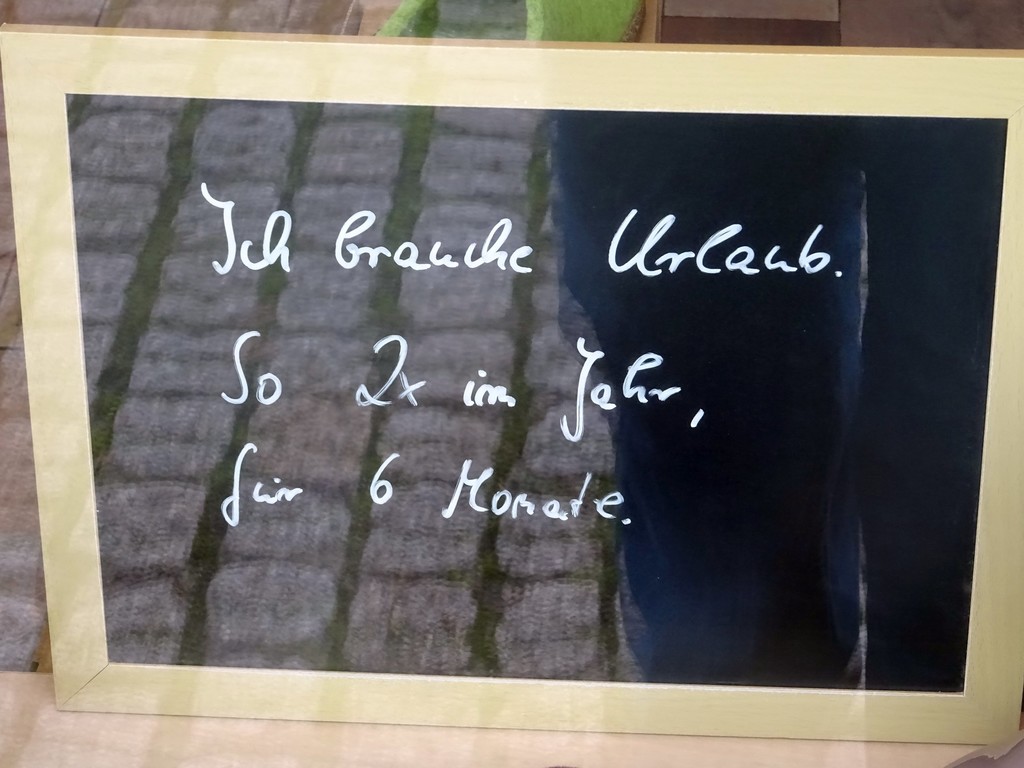 Ich brauche Urlaub.
So 2x im Jahr,
für 6 Monate.